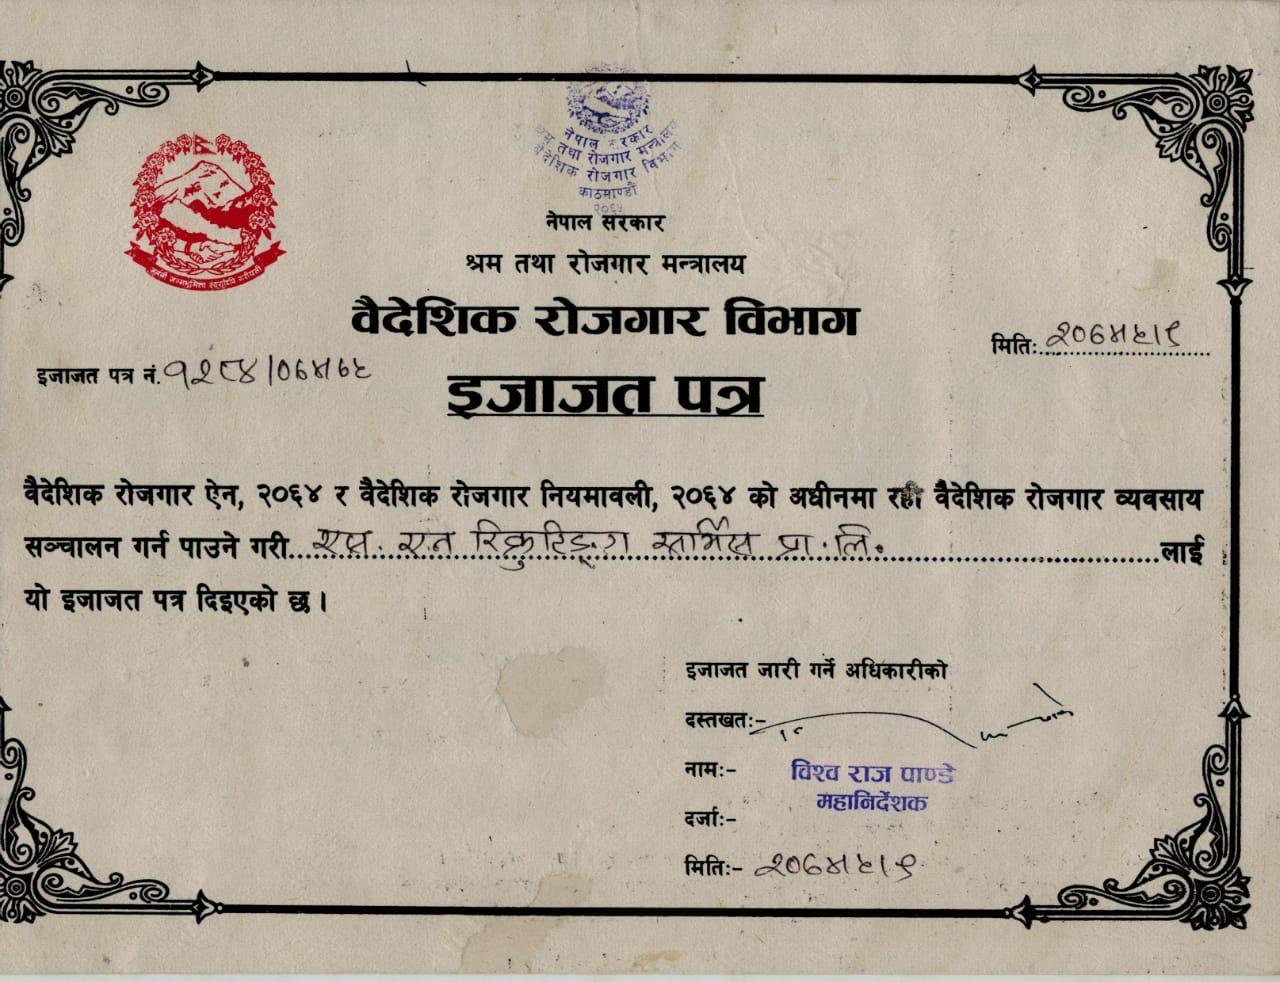 नेपाल सरकार
श्रम तथा रोजगार मन्त्रालय
वैदेशिक रोजगार विभाग
काठमाण्डौं
नेपाल सरकार
श्रम तथा रोजगार मन्त्रालय
वैदेशिक रोजगार विभाग
मितिः
इजाजत पत्र नं.
इजाजत पत्र
वैदेशिक रोजगार ऐन, २०६४ र वैदेशिक रोजगार नियमावली, २०६४ को अधीनमा रही वैदेशिक रोजगार व्यवसाय
सञ्चालन गर्न पाउने गरी एस. एन रिक्रुटिङ्ग सर्भिस प्रा.लि. लाई
यो इजाजत पत्र दिइएको छ ।
इजाजत जारी गर्ने अधिकारीको
दस्तखतः-
नामः- विश्व राज पाण्डे
महानिर्देशक
दर्जाः-
मितिः-